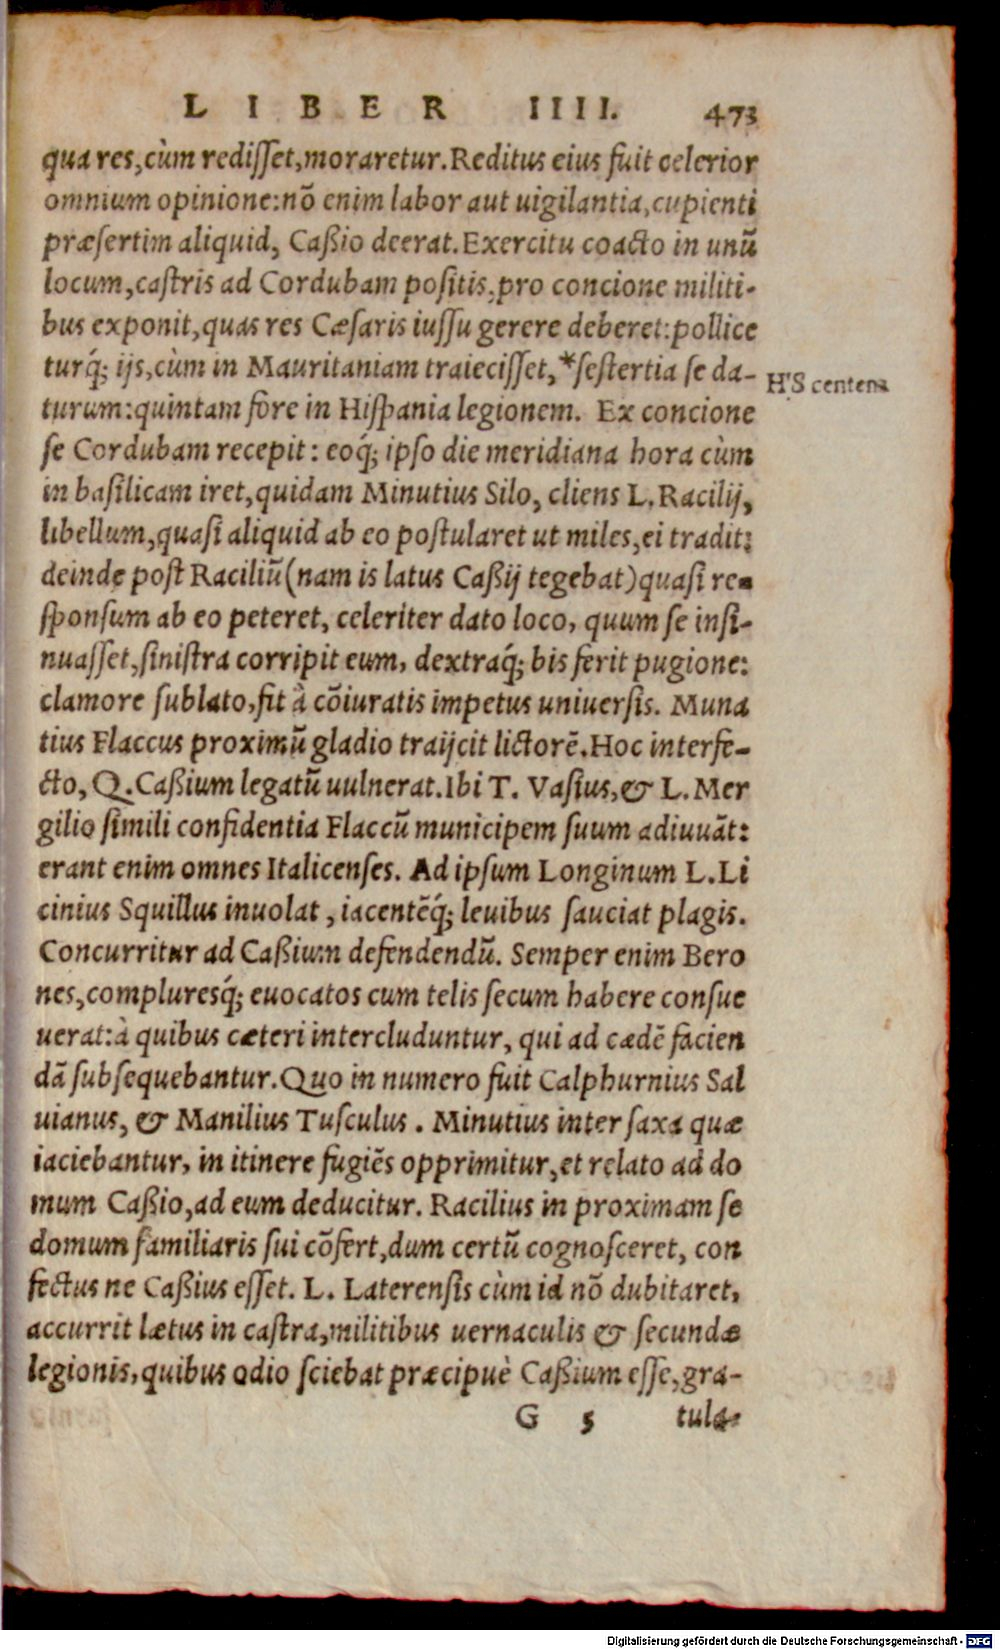 LIBER IIII. 473
qua res, cùm redisset, moraretur. Reditus eius fuit celerior
omnium opinione: nõ enim labor aut uigilantia, cupienti
præsertim aliquid, Caßio deerat. Exercitu coacto in unũ
locum, castris ad Cordubam positis, pro concione militi-
bus exponit, quas res Cæsaris iussu gerere deberet: pollice
turq́; ijs, cùm in Mauritaniam traiecisset, *sestertia se da-
HS centena
turum: quintam fore in Hispania legionem. Ex concione
se Cordubam recepit: eoq́; ipso die meridiana hora cùm
in basilicam iret, quidam Minutius Silo, cliens L. Racilij,
libellum, quasi aliquid ab eo postularet ut miles, ei tradit:
deinde post Raciliũ (nam is latus Caßij tegebat) quasi re-
sponsum ab eo peteret, celeriter dato loco, quum se insi-
nuasset, sinistra corripit eum, dextraq́; bis ferit pugione:
clamore sublato, fit à cõiuratis impetus uniuersis. Muna
tius Flaccus proximũ gladio traijcit lictorẽ. Hoc interfe-
cto, Q. Caßium legatũ uulnerat. Ibi T. Vasius, & L. Mer
gilio simili confidentia Flaccũ municipem suum adiuuãt:
erant enim omnes Italicenses. Ad ipsum Longinum L. Li
cinius Squillus inuolat, iacentẽq́; leuibus sauciat plagis.
Concurritur ad Caßium defendendũ. Semper enim Bero
nes, compluresq́; euocatos cum telis secum habere consue
uerat: à quibus cæteri intercluduntur, qui ad cædẽ facien
dã subsequebantur. Quo in numero fuit Calphurnius Sal
uianus, & Manilius Tusculus. Minutius inter saxa quæ
iaciebantur, in itinere fugiẽs opprimitur, et relato ad do
mum Caßio, ad eum deducitur. Racilius in proximam se
domum familiaris sui cõfert, dum certũ cognosceret, con
fectus ne Caßius esset. L. Laterensis cùm id nõ dubitaret,
accurrit lætus in castra, militibus uernaculis & secundæ
legionis, quibus odio sciebat præcipuè Caßium esse, gra-
G 5 tula-
Digitalisierung gefördert durch die Deutsche Forschungsgemeinschaft - DFG